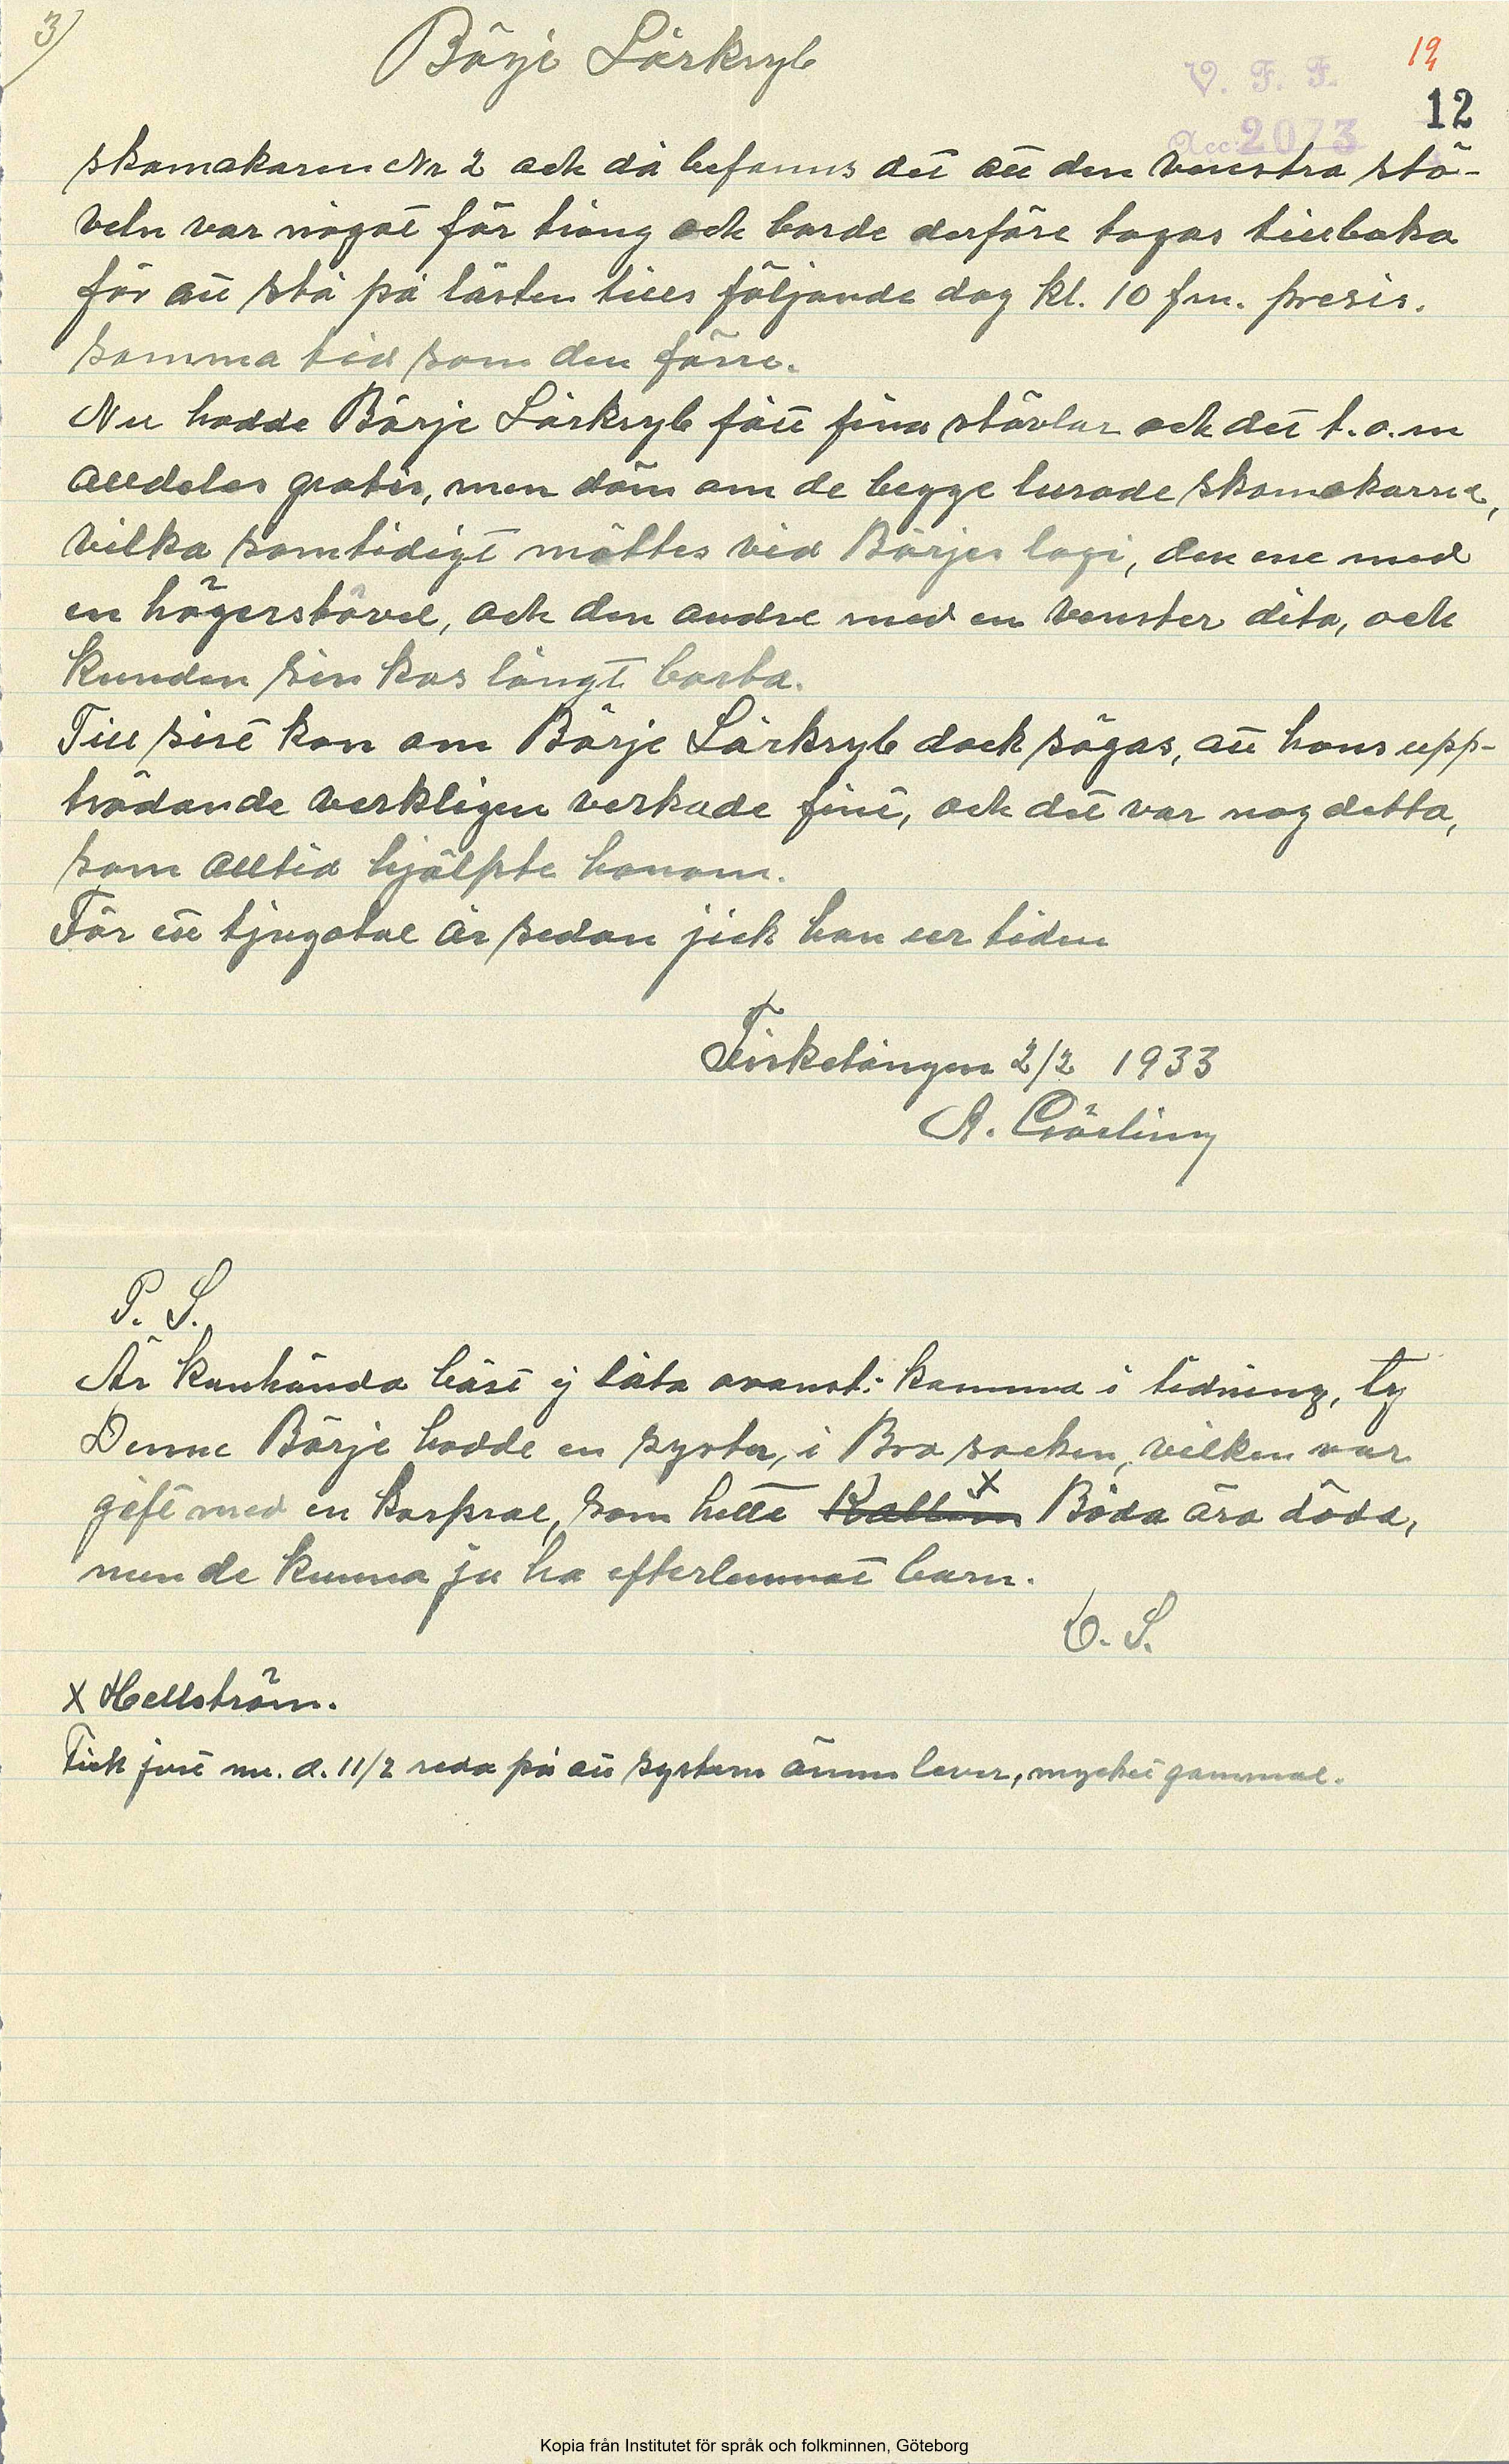 3)
Börje Lärkryb
V. F. F.
19
12
Acc 2073
skomakaren Nr 2 och då befanns det att den venstra stö-
veln var något för trång och borde derföre tagas tillbaka
för att stå på lästen tills följande dag kl. 10 fm. presis.
samma tid som den förre.
Nu hadde Börje Lärkryb fått fina stövlar och det t.o.m
alldeles gratis, men döm om de begge lurade skomakarne,
vilka samtidigt möttes vid Börjes logi, den ene med
en högerstövel, och den andre med en venster dito, och
kunden sin kos långt borta.
Till sist kan om Börje Lärkryb dock sägas, att hans upp-
trädande verkligen verkade fint, och det var nog detta,
som alltid hjälpte honom.
För ett tjugotal år sedan jick han ur tiden
2/2 1933
A.
P. S.
Är kanhända bäst ej låta ovanst: komma i tidning, ty
Denne Börje hadde en syster, i Bro socken, vilken var
gift med en korpral, som hette x Båda äro döda,
men de kunna ju ha efterlemnat barn.
D. S.
x Hellström.
Fick just nu. d. 11/2 reda på att systern ännu lever, mycket gammal.
Kopia från Institutet för språk och folkminnen, Göteborg